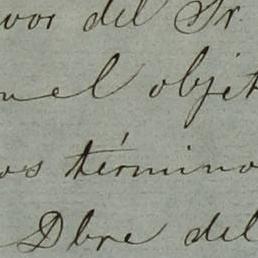 vor del Sr.
uel objet
os término
Dbre del